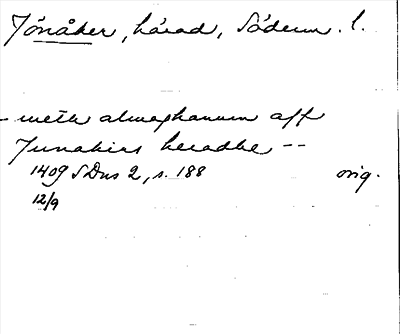 Jönåker, härad, Söderm. l.
– meth almoghanum aff
Junakirs heradhe --
1409 SDns 2, s. 188 orig.
12/9